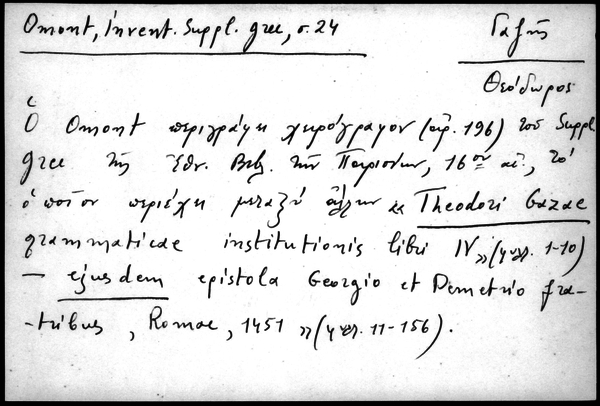 Omont, Invent. Suppl. grec, σ. 24
Γαζῆς
Θεόδωρος
Ὁ Omont περιγράφει χειρόγραφον (ἀρ. 196) τοῦ Suppl.
grec τῆς Ἐθν. Βιβ. τῶν Παρισίων, 16ου αἰ., τὸ
ὁποῖον περιέχει μεταξὺ ἄλλων «Theodori Gazae
grammaticae institutionis libri IV» (φυλ. 1-10)
— ejusdem epistola Georgio et Demetrio fra-
-tribus, Romae, 1451» (φυλ. 11-156).